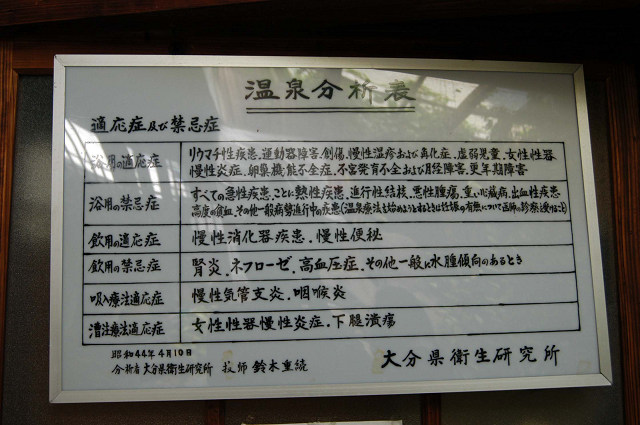 温泉分析表
適応症及び禁忌症
浴用の適応症
リウマチ性疾患、運動器障害、創傷、慢性湿疹および角化症、虚弱児童、女性性器
慢性炎症、卵巣機能不全症、不全発育不全および月経障害、更年期障害
浴用の禁忌症
すべての急性疾患、ことに熱性疾患、進行性結核、悪性腫瘍、重い心臓病、出血性疾患
高度の貧血、その他一般病勢進行中の疾患(温泉療法を始めようとするときは妊娠の有無について医師の診察を受けること)
飲用の適応症
慢性消化器疾患、慢性便秘
飲用の禁忌症
腎炎、ネフローゼ、高血圧症、その他一般に水腫傾向のあるとき
吸入療法適応症
慢性気管支炎、咽喉炎
漕注療法適応症
女性性器慢性炎症、下腿潰瘍
昭和44年4月10日
分析者 大分県衛生研究所 技師 鈴木重
大分県衛生研究所